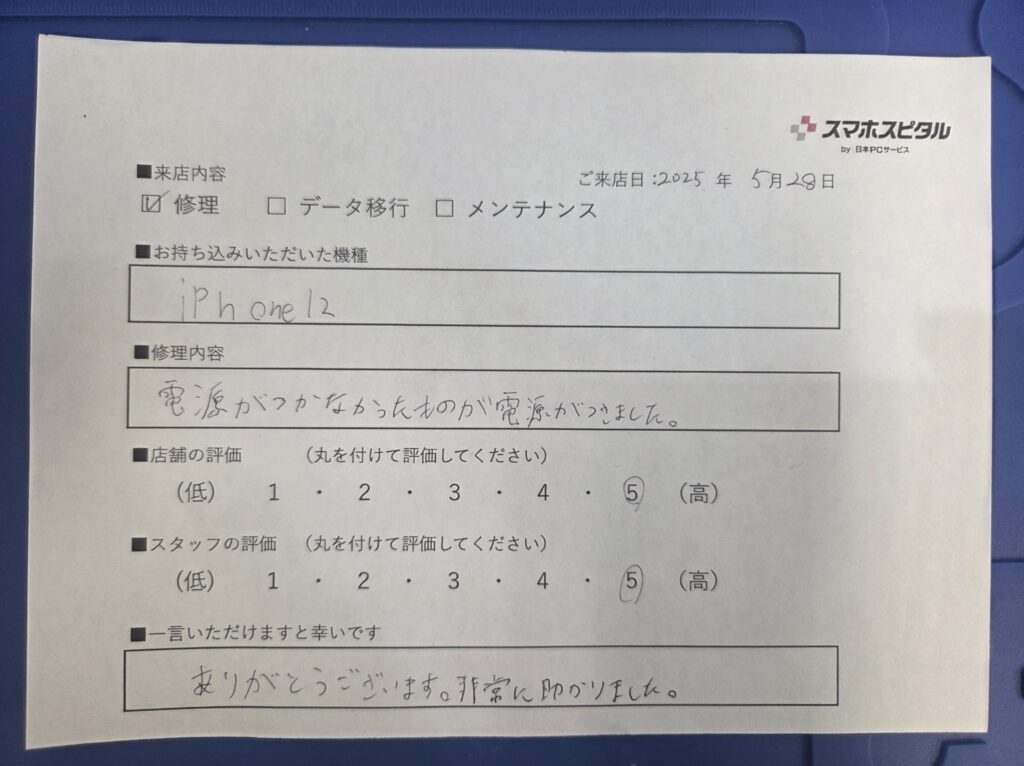 スマホスピタル
by 日本PCサービス
■来店内容
ご来店日:2025 年 5月28日
☑ 修理 □ データ移行 □ メンテナンス
■お持ち込みいただいた機種
iPhone12
■修理内容
電源がつかなかったものが電源がつきました。
■店舗の評価 （丸を付けて評価してください）
（低） 1 ・ 2 ・ 3 ・ 4 ・ 5 （高）
■スタッフの評価 （丸を付けて評価してください）
（低） 1 ・ 2 ・ 3 ・ 4 ・ 5 （高）
■一言いただけますと幸いです
ありがとうございます。非常に助かりました。